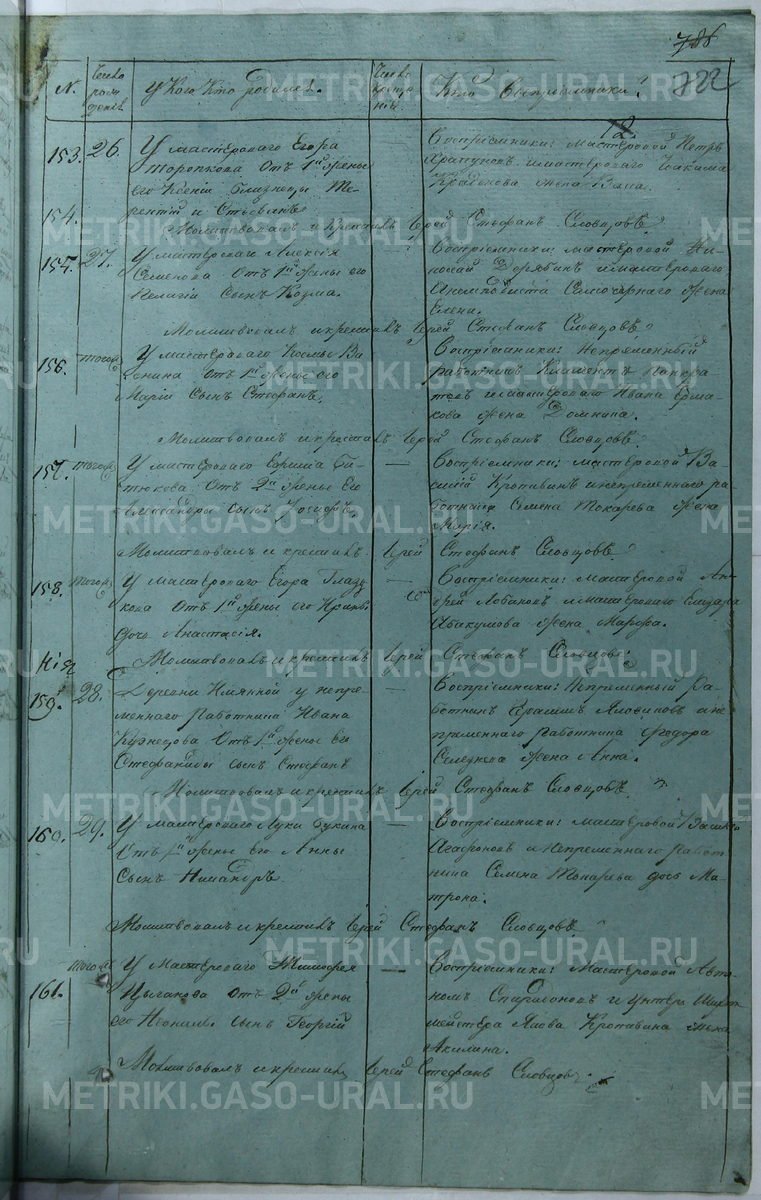 786
722
N.
Число рожденія
У кого кто родился.
Число крещенія
Кто воспріемники?
12
153. 26. У мастероваго Егора
Торопкова отъ 1й жены
его Ксеніи близнецы Те-
154. рентій и Стефанъ
Молитвовалъ и крестилъ Іерей Стефанъ Словцовъ
Воспріемники: мастеровой Петръ
Храпуновъ и мастероваго Іоакима
жена
155. 27. У мастероваго Алексія
Семенова отъ 1й жены его
Пелагіи сынъ Козма.
Воспріемники: мастеровой Ни-
колай Дерябинъ и мастероваго
жена
Елена.
Молитвовалъ и крестилъ Іерей Стефанъ Словцовъ
156. того У мастероваго Космы Ва
отъ 1й жены его
Маріи сынъ Стефанъ,
Воспріемники: Непременный
работникъ Климентъ Панкра
товъ и мастероваго Ивана Ерма
кова жена Домнина.
Молитвовалъ и крестилъ Іерей Стефанъ Словцовъ
157. того У мастероваго Ефима Би-
тюкова отъ 2й жены его
Александры сынъ Іосифъ,
Воспріемники: мастеровой Ва
силій Кропивинъ и непременнаго ра-
ботника Семена Токарева жена
Марія.
Молитвовалъ и крестилъ Іерей Стефанъ Словцовъ
158. того У мастероваго Егора Глазу
кова отъ 1й жены его Ирины
дочь Анастасія.
Воспріемники: мастеровой Ан-
дрей Лобановъ и мастероваго Елизара
Абакумова жена Марѳа.
Молитвовалъ и крестилъ Іерей Стефанъ Словцовъ
159. 28. Деревни у непре-
меннаго работника Ивана
Кузнецова отъ 1й жены его
Стефаниды сынъ Стефанъ
Воспріемники: Непременный ра-
ботникъ и не
пременнаго работника Ѳедора
Селезнева жена Анна.
Молитвовалъ и крестилъ Іерей Стефанъ Словцовъ
160. 29. У мастероваго Луки Букина
отъ 1й жены его Анны
сынъ Никаноръ
Воспріемники: мастеровой Василій
Агафоновъ и непременнаго работ
ника Семена Токарева дочь Ма-
трона.
Молитвовалъ и крестилъ Іерей Стефанъ Словцовъ
161. того У мастероваго Тимофея
Цыганова отъ 2й жены
его Неонилы сынъ Георгій
Воспріемники: Мастеровой Авто
номъ Спиридоновъ и унтеръ Шихт
мейстера Якова Кропивина жена
Акилина.
Молитвовалъ и крестилъ Іерей Стефанъ Словцовъ
METRIKI.GASO-URAL.RU